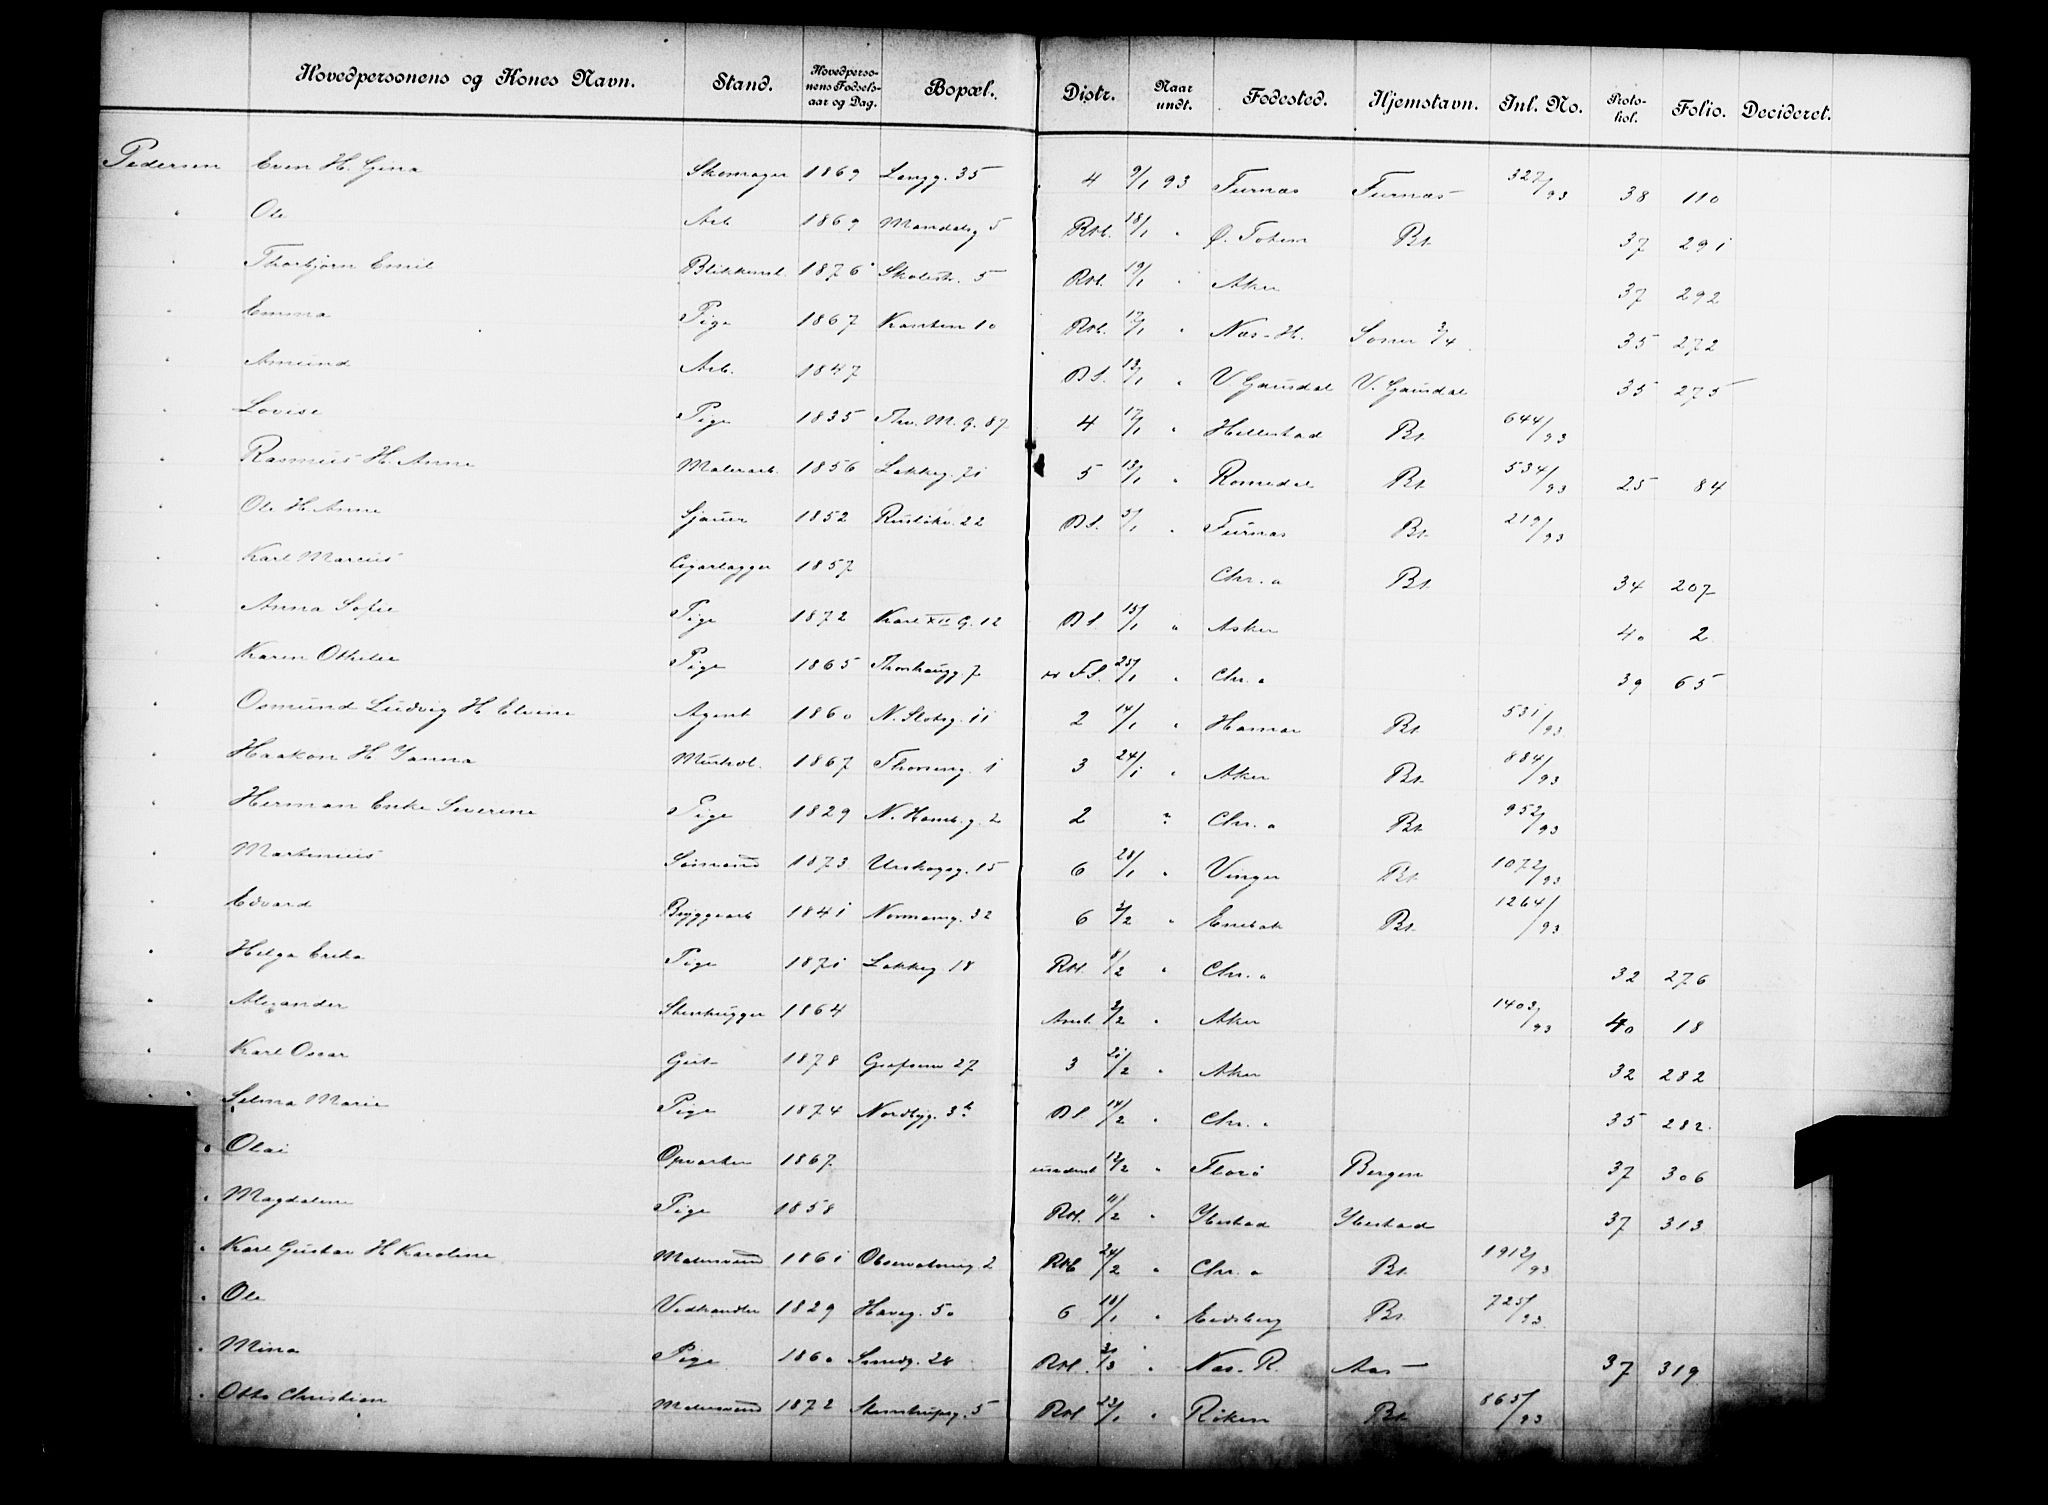 Hovedpersonens og Kones Navn. Stand. Hovedpersonens Fødselsaar og Dag. Bopæl. Distr. Naar undt. Fødested. Hjemstavn. Inl. No. Protokol. Folio. Decideret.
Pedersen Even H. Gina Skomager 1869 Langg. 35 4 9/1 93 Furnæs Furnæs 327/93 38 110
" Ole Arb. 1869 Mandalsg 5 Rtl. 18/1 " Ø. Toten Bt. 37 291
" Thorbjørn Emil Blikkensl. 1876 Skolestr. 5 Rtl. 19/1 " Aker 37 292
" Emma Pige 1867 Kanten 10 Rtl. 12/1 " Næs-H. 35 272
" Amund Arb. 1847 B.S. 13/1 " V. Gausdal V. Gausdal 35 275
" Lovise Pige 1835 Thv. M. g. 87 4 17/1 " Hillestad Bt. 644/93
" Rasmus H. Anne Malerarb. 1856 Lakkeg. 71 5 13/1 " Romedal Bt. 534/93 25 84
" Ole H. Anne Sjauer 1852 Rusløkv. 22 B.S. 5/1 " Furnæs Bt. 219/93
" Karl Marius Cigarlagger 1857 Chr.a Bt. 34 207
" Anna Sofie Pige 1872 Karl XII G. 12 B.S. 13/1 " Asker 40 2
" Karen Othilie Pige 1865 Thorshaugg. 7 F.S. 25/1 " Chr.a 39 65
" Osmund Ludvig H. Elvine Agent 1860 N. Slotsg. 11 2 14/1 " Hamar Bt. 531/93
" Haakon H. Janna Mursv. 1867 Thorsng. 1 3 24/1 " Aker Bt. 884/93
" Herman Enke Severine Pige 1829 N. Hamb.g. 2 2 " Chr.a Bt. 952/93
" Martinius Sømand 1873 Urskogsg. 15 6 28/1 " Vinger Bt. 1072/93
" Edvard Bryggearb 1841 Normanng. 32 6 2/2 " Enebak Bt. 1264/93
" Helga Erika Pige 1871 Lakkeg 18 Rtl. 8/2 " Chr.a 32 276
" Alexander Stenhugger 1864 2/2 " Aker 1403/93 40 18
" Karl Oscar Gut 1878 Grefsenv 27 3 21/2 " Aker 32 282
" Selma Marie Pige 1874 Nordbyg. 3 B.S. 14/2 " Chr.a 35 282
" Olai Opvarter 1867 12/2 " Florø Bergen 37 306
" Magdalene Pige 1858 Rtl. 11/2 " Ibestad Ibestad 37 313
" Karl Gustav H Karoline Malersvend 1861 Observatorieg. 2 Rtl. 24/2 " Chr.a Bt. 1912/93
" Ole Vedhandler 1829 Haveg. 50 6 18/1 " Eidsberg Bt. 725/93
" Mina Pige 1860 Smedg. 28 Rtl. " Næs. R. Aas 37 319
" Otto Christian Malersvend 1872 Stenstrupsg. 5 Rtl. 23/1 " Røken Bt. 865/93